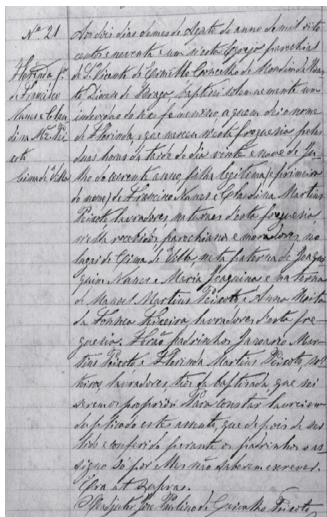 Nº 21
Florinda fª
de Francisco
Nunes e Clau
dina Mz. Pei
xoto
Cima de Villa
Aos dois dias do mez de Agosto do anno de mil oito
centos noventa e um n'esta Egreja parochial
de S. Vicente de Ermello Concelho de Mondim de Bas
to Diocese de Braga baptisei solemnemente um
individuo do sexo feminino a quem dei o nome
de Florinda, que nasceu n'esta freguesia pelas
duas horas da tarde do dia vinte e nove de Ju
lho do corrente anno, filha legitima (primeira
do nome) de Francisco Nunes e Claudina Martins
Peixoto lavradores naturaes d'esta freguesia
n'ella recebidos parochianos e moradores no
logar de Cima de Villa, neta paterna de Joa
quim Nunes e Maria Joaquina e materna
de Manoel Martins Peixoto e Anna Maria
da Fonseca Teixeira lavradores d'esta fre
guesia. Forão padrinhos Januario Mar
tins Peixoto e Florinda Martins Peixoto, sol
teiros, lavradores, tios da baptisada, que sei
serem os proprios. Para constar lavrei em
duplicado este assento, que depois de ser
lido e conferido perante os padrinhos o as
signo só por Mim não saberem escrever.
Era ut supra.
José Paulino de Carvalho Peixoto